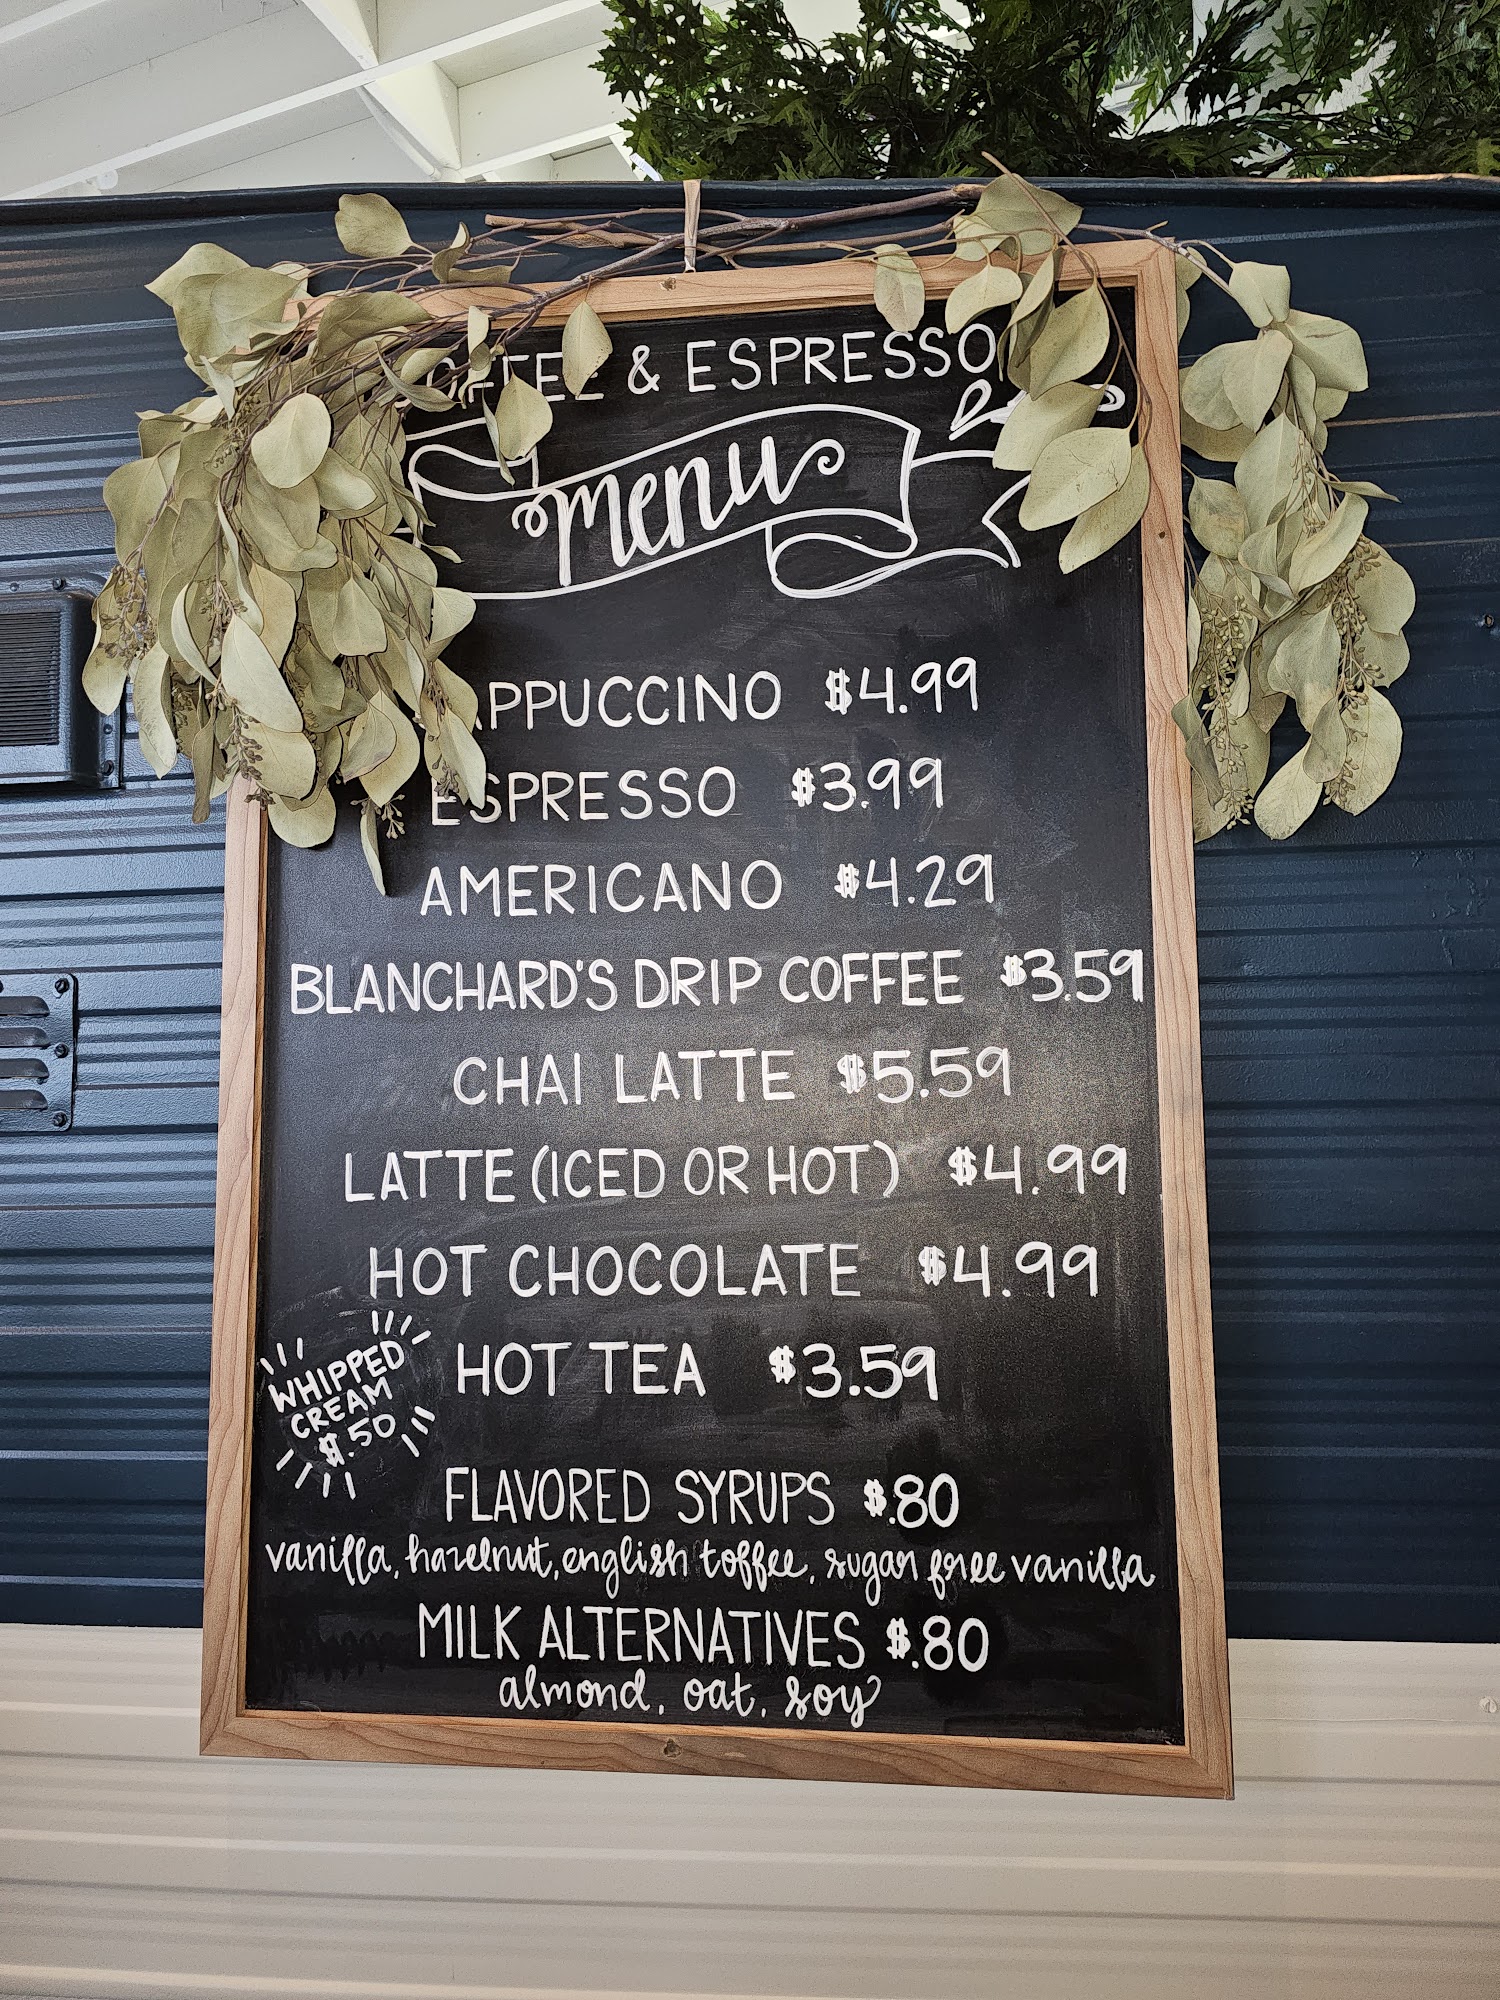 COFFEE & ESPRESSO
menu
CAPPUCCINO $4.99
ESPRESSO $3.99
AMERICANO $4.29
BLANCHARD'S DRIP COFFEE $3.59
CHAI LATTE $5.59
LATTE (ICED OR HOT) $4.99
HOT CHOCOLATE $4.99
HOT TEA $3.59
WHIPPED
CREAM
$.50
FLAVORED SYRUPS $.80
vanilla, hazelnut, english toffee, sugar free vanilla
MILK ALTERNATIVES $.80
almond, oat, soy